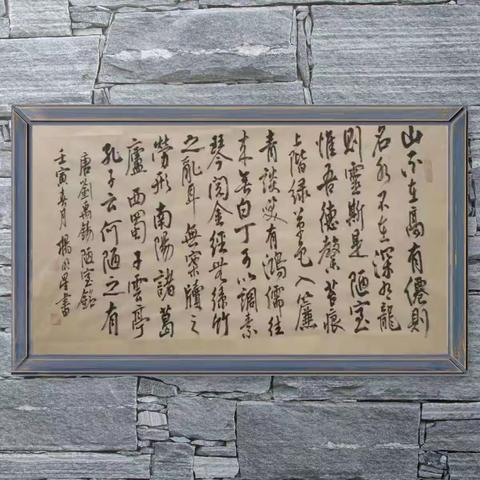 山不在高有僊則
名水不在深有龍
則靈斯是陋室
惟吾德馨苔痕
上階綠草色入簾
青談笑有鴻儒往
來無白丁可以調素
琴閱金經無絲竹
之亂耳無案牘之
勞形南陽諸葛
廬西蜀子雲亭
孔子云何陋之有
唐劉禹錫陋室銘
壬寅春月楊明星書